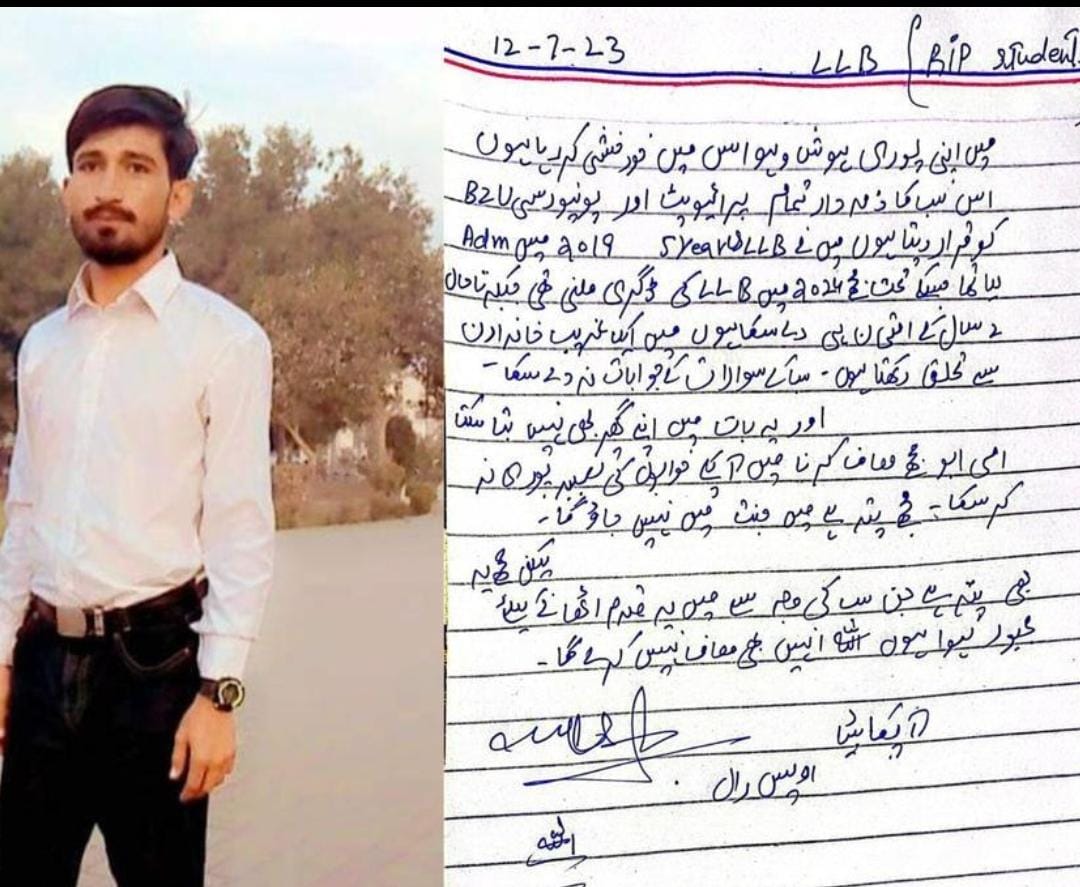 12-7-23 LLB { RIP student
میں اپنی پوری ہوش و ہواس میں خودخشی کر رہا ہوں
اس سب کا ذمہ دار تمام پرائیویٹ اور یونیورسٹی BZU
کو قرار دیتا ہوں میں نے LLB 5 Year 2019 میں Adm
لیا تھا جسکے تحت مجھے 2024 میں LLB کی ڈگری ملنی تھی جبکہ تاحال
2 سال کے امتحان ہی دے سکا ہوں میں ایک غریب خاندان
سے تعلق رکھتا ہوں - سب کے سوالات کے جوابات نہ دے سکا -
اور یہ بات میں اپنے گھر بھی نہیں بتا سکتا
امی ابو مجھے معاف کرنا میں آپکے خوابوں کی تعبیر پوری نہ
کر سکا - مجھے پتہ ہے میں جنت میں نہیں جاؤ گا -
لیکن مجھے یہ
بھی پتہ ہے جن سب کی وجہ سے میں یہ قدم اٹھانے کیلئے
مجبور ہوا ہوں اللہ انہیں بھی معاف نہیں کرے گا -
آپکا بیٹا
اویس رال
اللہ